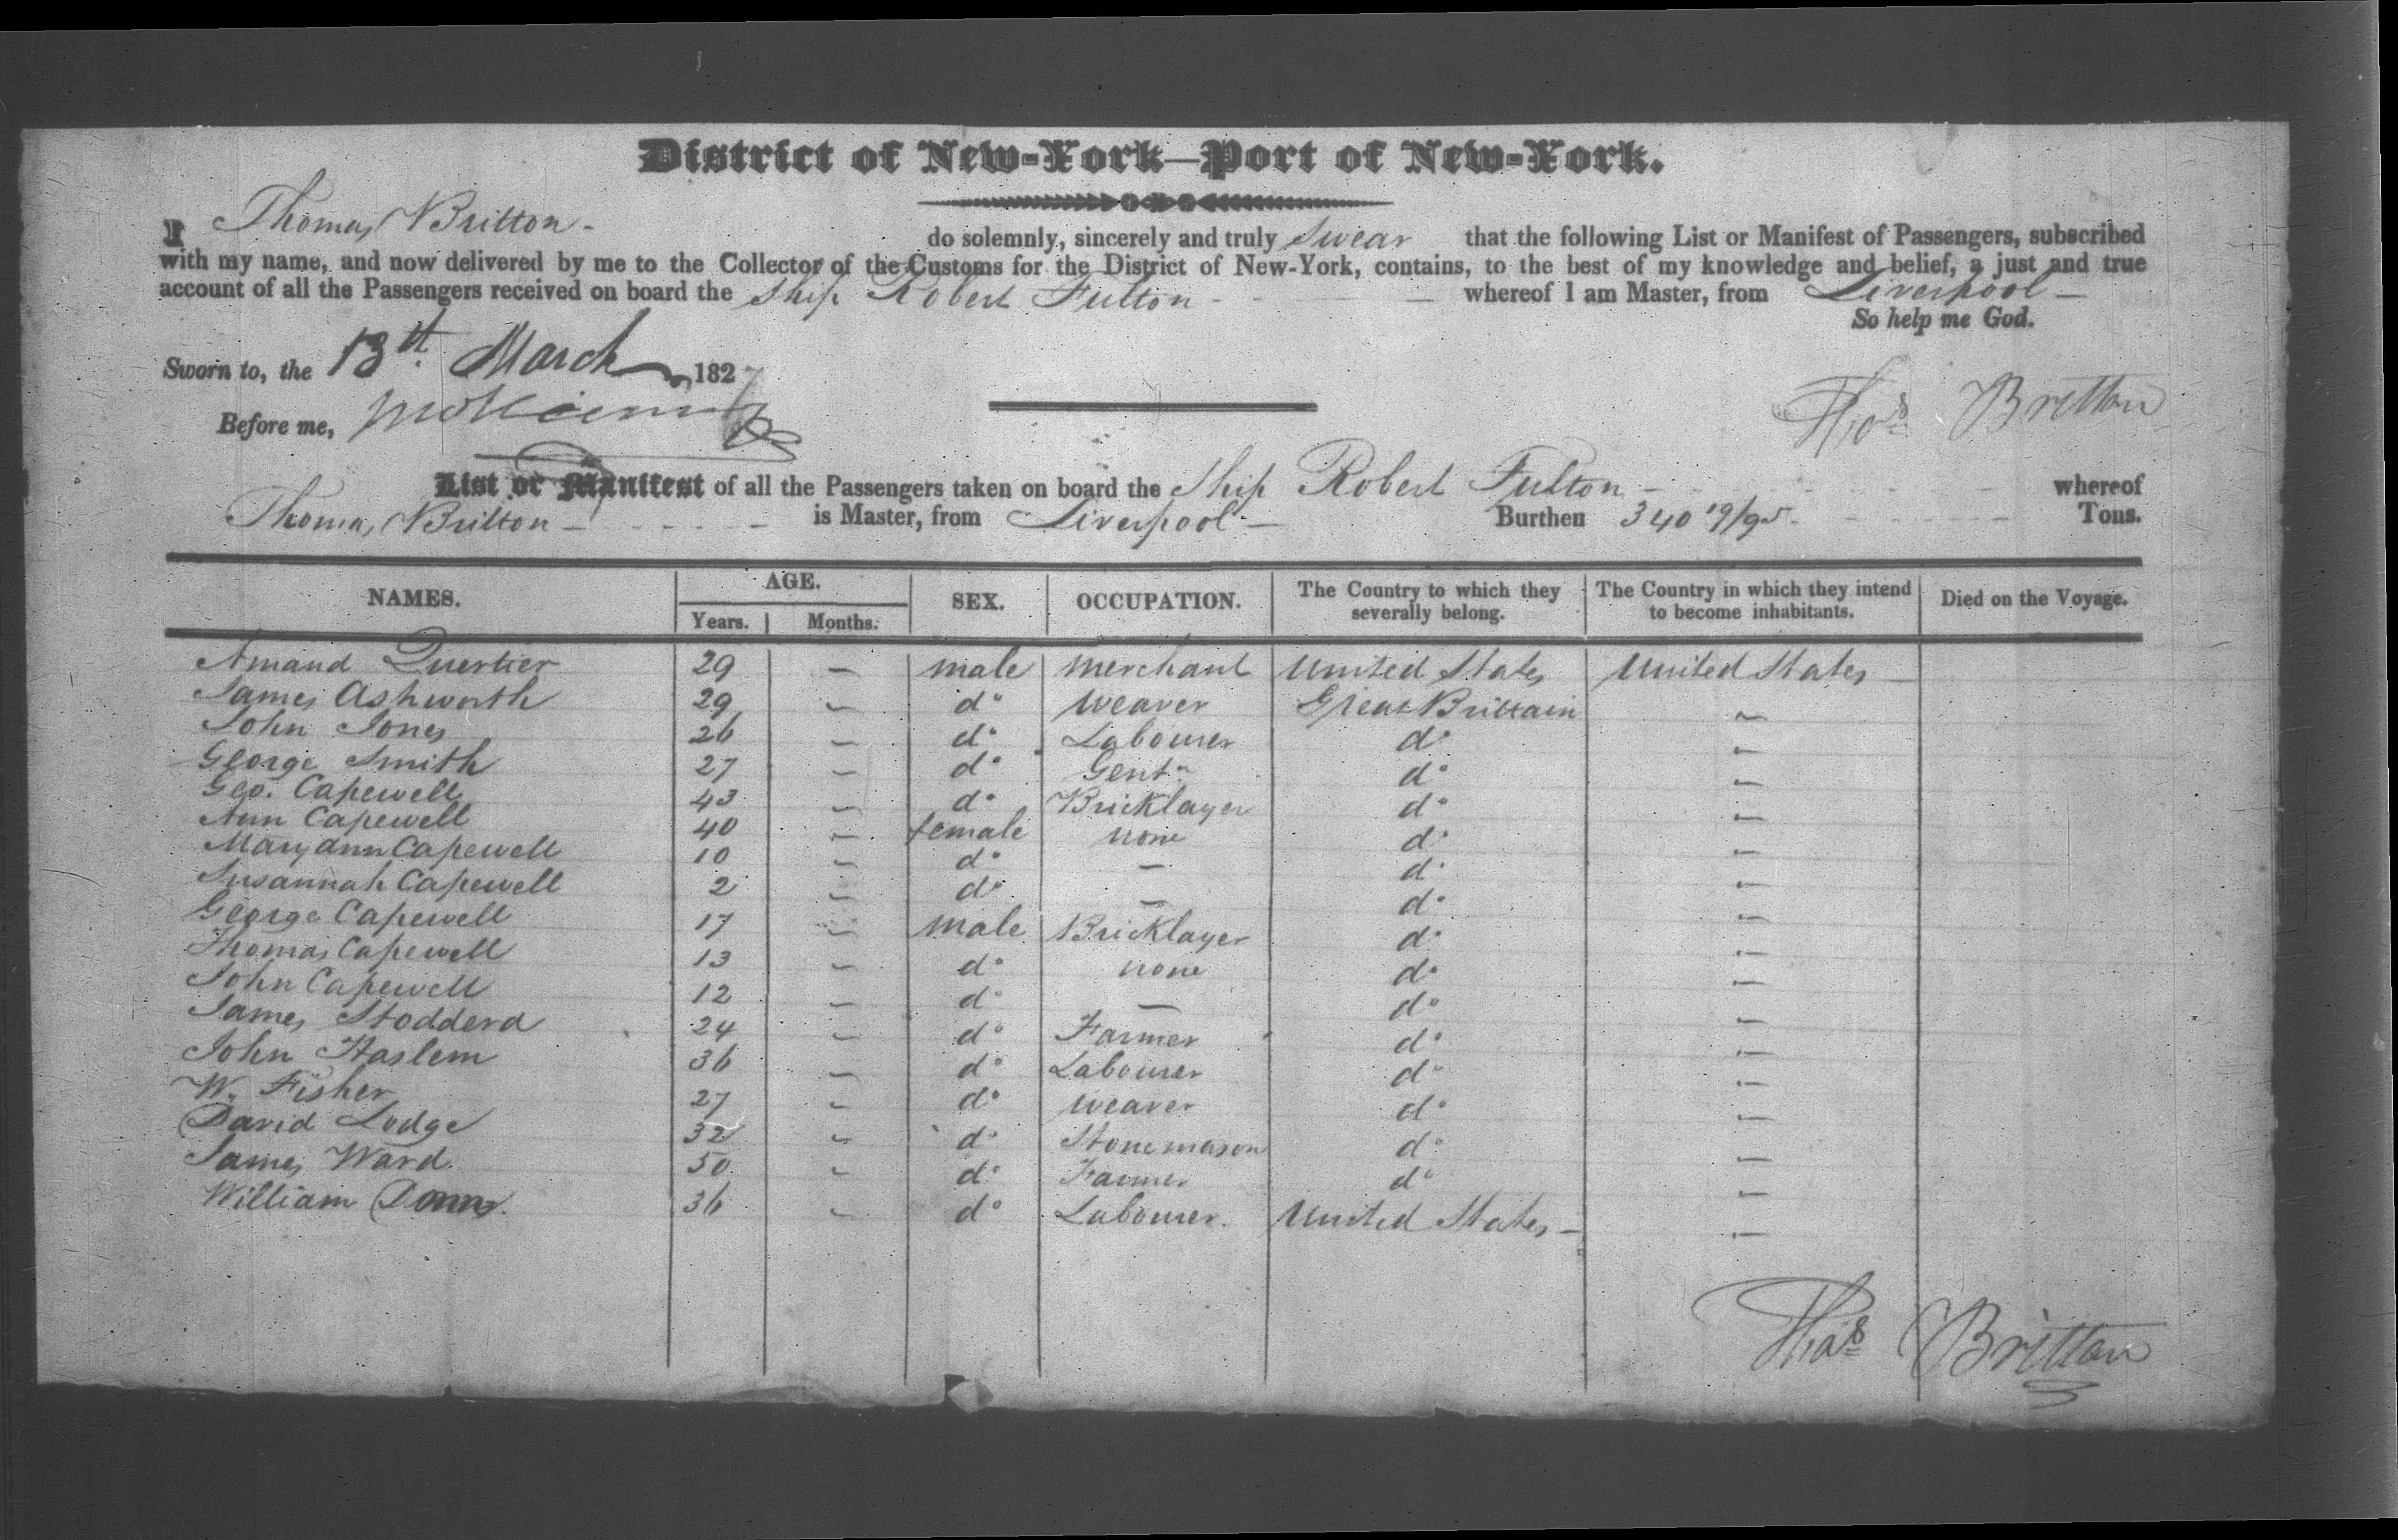 District of New-York—Port of New-York.
I Thomas Britton - do solemnly, sincerely and truly swear that the following List or Manifest of Passengers, subscribed
with my name, and now delivered by me to the Collector of the Customs for the District of New-York, contains, to the best of my knowledge and belief, a just and true
account of all the Passengers received on board the Ship Robert Fulton - whereof I am Master, from Liverpool -
So help me God.
Sworn to, the 13th March 1827
Before me,
Thos Britton
List or Manifest of all the Passengers taken on board the Ship Robert Fulton - whereof
Thomas Britton - is Master, from Liverpool - Burthen 340 19/95 - Tons.
NAMES. AGE. SEX. OCCUPATION. The Country to which they severally belong. The Country in which they intend to become inhabitants. Died on the Voyage.
Years. Months.
Amand Quertier 29 — male merchant United States United States —
James Ashworth 29 — do weaver Great Brittain —
John Jones 26 — do Labourer do —
George Smith 27 — do Gentn do —
Geo. Capewell 43 — do Bricklayer do —
Ann Capewell 40 — female none do —
Maryann Capewell 10 — do — do —
Susannah Capewell 2 — do — do —
George Capewell 17 — male Bricklayer do —
Thomas Capewell 13 — do none do —
John Capewell 12 — do — do —
James Stodderd 24 — do Farmer do —
John Haslem 36 — do Labourer do —
W. Fisher 27 — do weaver do —
David Lodge 32 — do Stone mason do —
James Ward. 50 — do Farmer do —
William 36 — do Labourer. United States — —
Thos Britton